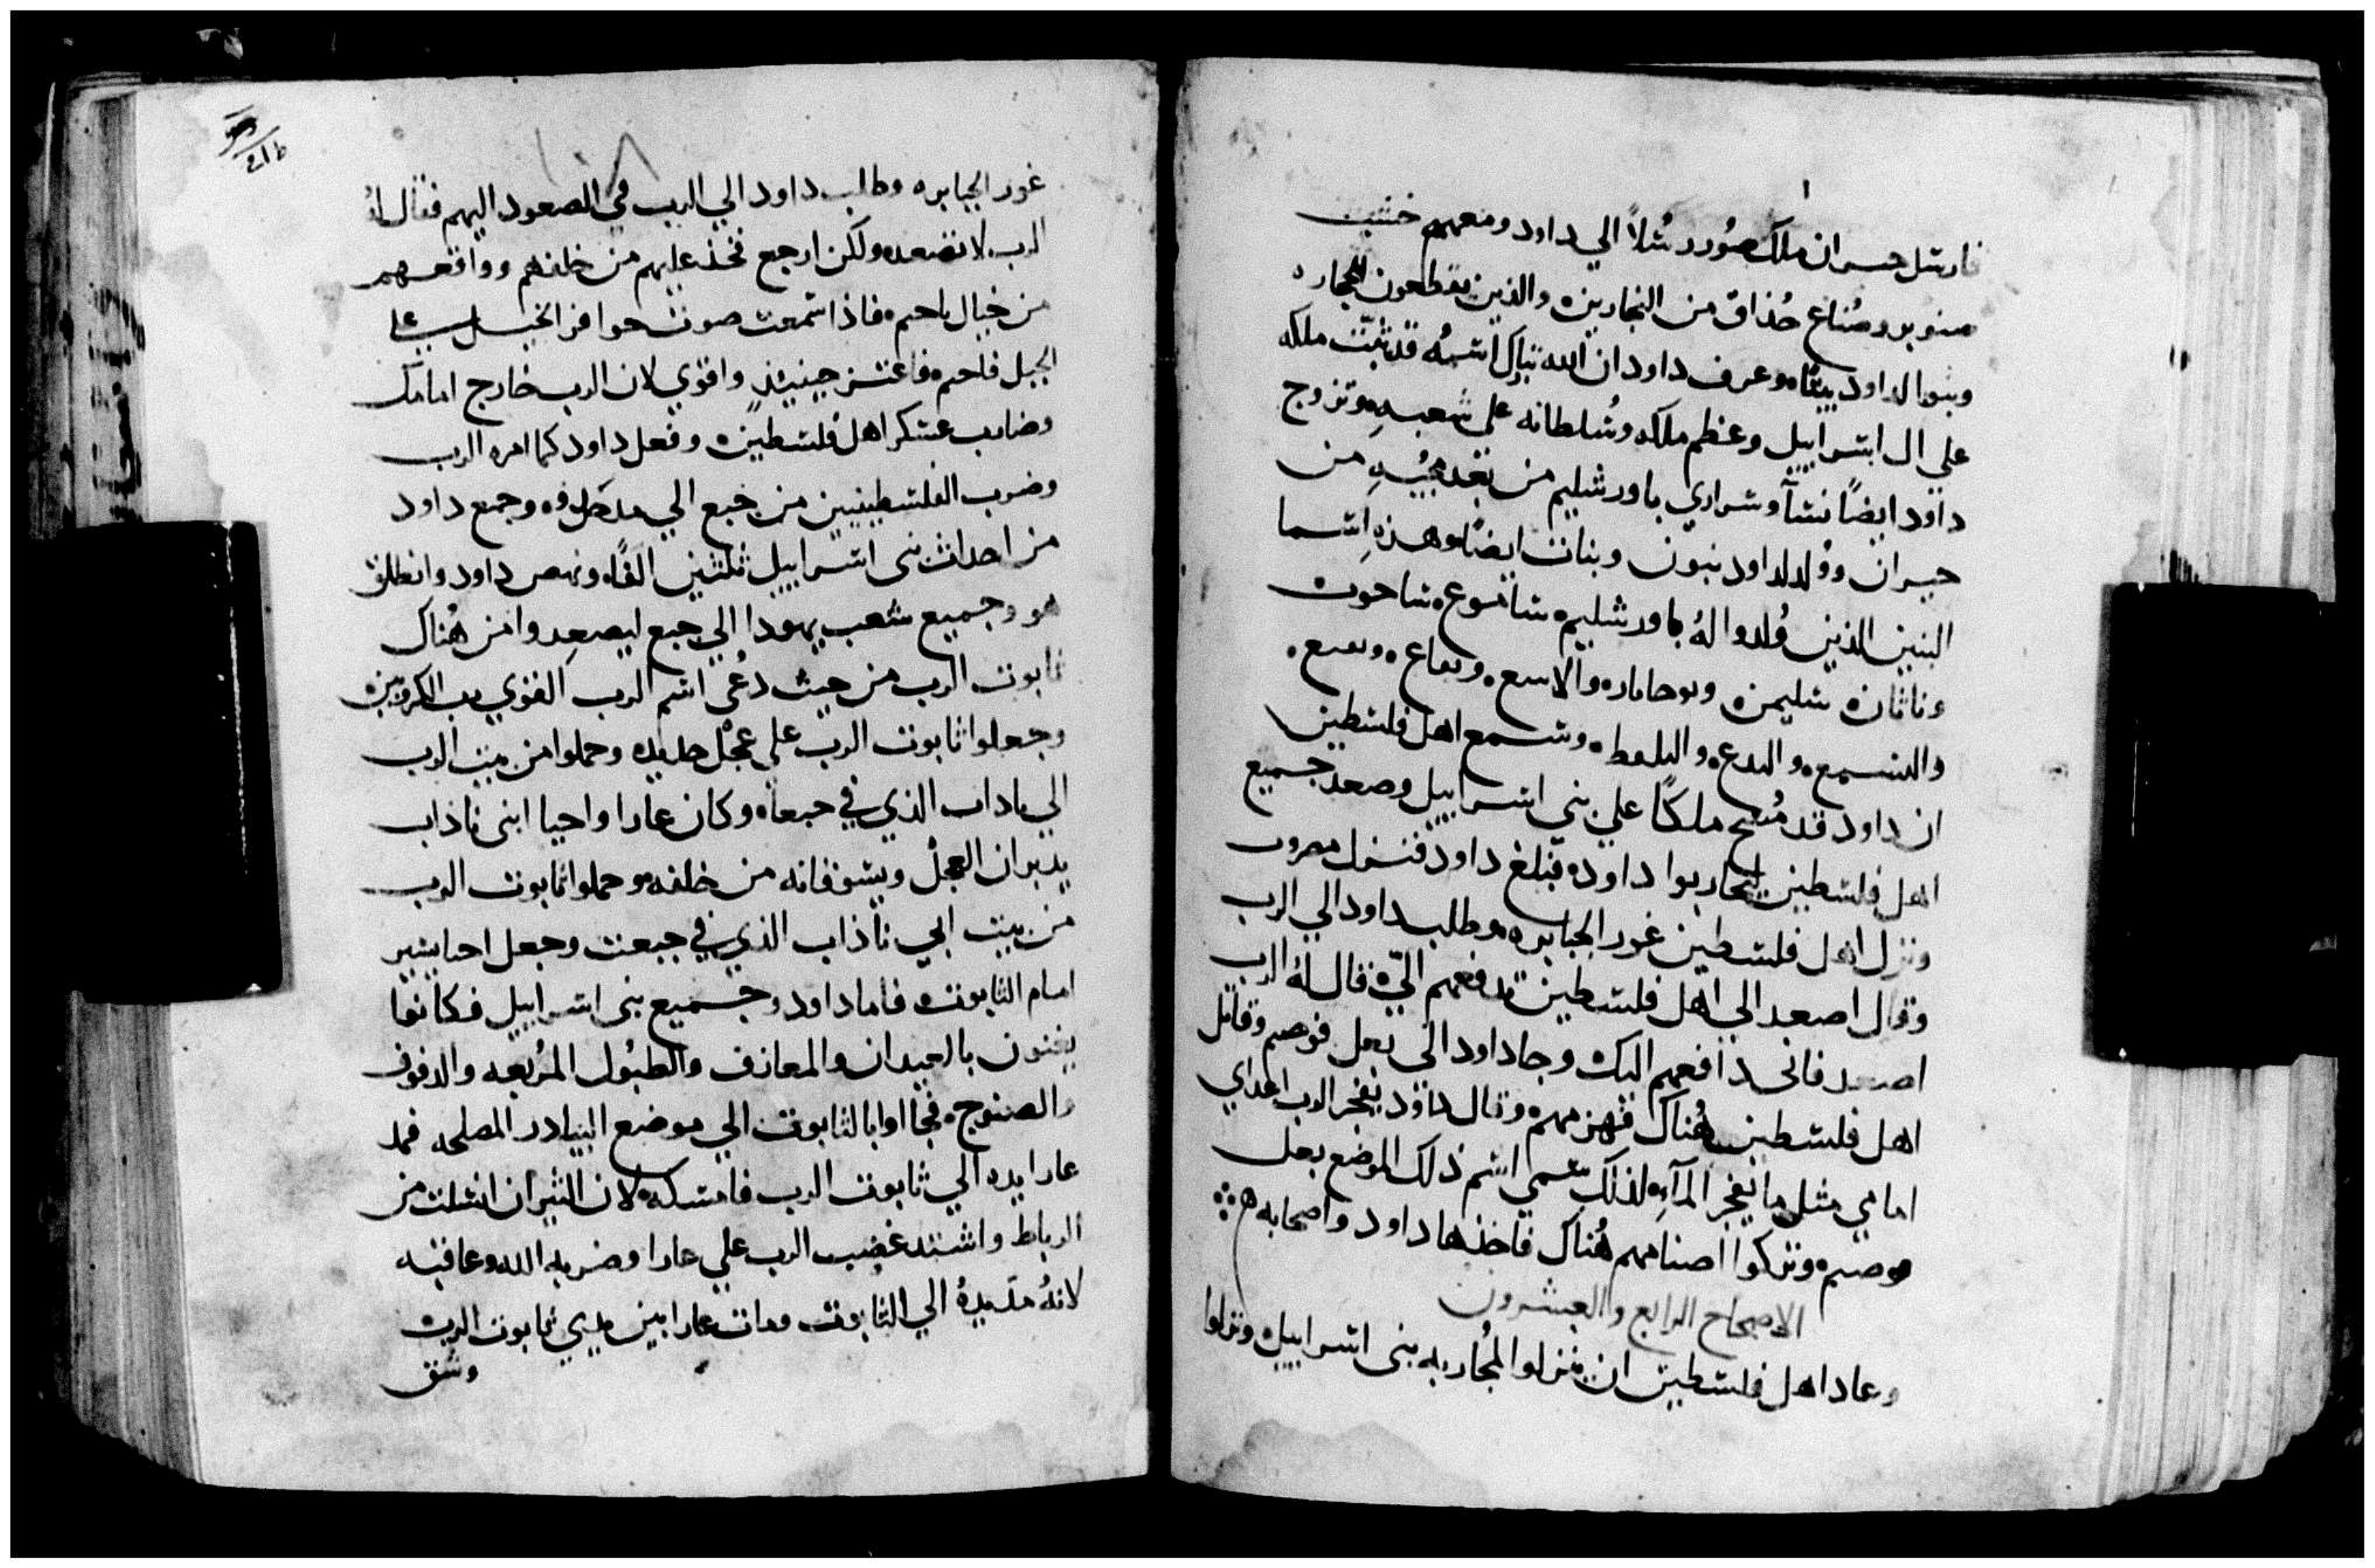 فارسل حيران ملك صُور رسُلاً الي داود ومعهم خشب
صنوبر وصُناع حُذاق من النجارين والذين يقطعون الحجاره
وبنوا لداود بيتًا وعرف داود ان الله تبارك اسمُه قد ثبّت ملكه
علي ال اسراييل وعظم ملكه وسُلطانه علي شعبهِ وتزوج
داود ايضاً نسآ وسراري باورشليم من بعد مجيُهِ من
حبران ووُلد لداود بنون وبنات ايضًا وهذه اسما
البنين الذين وُلدوا لهُ باورشليم ساموع ساحوت
وناثان سليمن
والبلعط وسمع اهل فلسطين
ان داود قد مُسح ملكاً علي بني اسراييل وصعد جميع
اهل فلسطين ليحاربوا داود فبلغ داود فنزل
ونزل اهل فلسطين غور الجبابره وطلب داود الي الرب
وقال اصعد الي اهل فلسطين تدفعهم اليّ قال لهُ الرب
اصعد فاني دافعهم اليك وجا داود الي بعل فرصم وقاتل
اهل فلسطين هُناك فهزمهم وقال داوُد يفجر الرب اعداي
امامي مثل ما يفجر المآءِ لذلك سمي اسم ذلك الموضع بعل
وتركوا اصنامهم هُناك فاخذها داود واصحابه
الاصحاح الرابع والعشرون
وعاد اهل فلسطين ان ينزلوا لمُحاربه بني اسراييل ونزلوا
غور الجبابره وطلب داود الي الرب في الصعود اليهم فقال لهُ
الرب لا تصعد ولكن ارجع فخذ عليهم من خلفهم وواقعهم
من خيال باحم فاذا سمعت صوت حوافر الخيل علي
الجبل فاحم فاعتز حينيذٍ واقوي لان الرب خارج امامك
وضارب عسكر اهل فلسطين وفعل داود كما امره الرب
وضرب الفلسطينيين من جبع الي وجمع داود
من احداث بني اسراييل ثلثين الفًا ونهض داود وانطلق
هو وجميع شعب يهودا الي جبع ليصعدوا من هُناك
تابوت الرب من حيث دُعي اسم الرب القوي الكروبين
وجعلوا تابوت الرب علي عجْل جديده وحملوا من بيت الرب
الي ناداب الذي في جبعا وكان عازا واحيا ابني ناذاب
يدبران العجْل ويسوقانه من خلفه وحملوا تابوت الرب
من بيت ابي ناذاب الذي في جبعت وجعل احيا يسير
امام التابوت فاما داود وجميع بني اسراييل فكانوا
يغنون بالعيدان والمعازف والطبُول المُربعه والدفوف
والصنوج فجااوا بالتابوت الي موضع البيادر المصلحه فمد
عازا يده الي تابوت الرب فامسكه لان الثيران انسلت من
الرباط واشتد غضب الرب علي عازا وضربه الله وعاقبه
لانهُ مدّ يدهُ الي التابوت ومات عازا بين يدي تابوت الرب
وشق